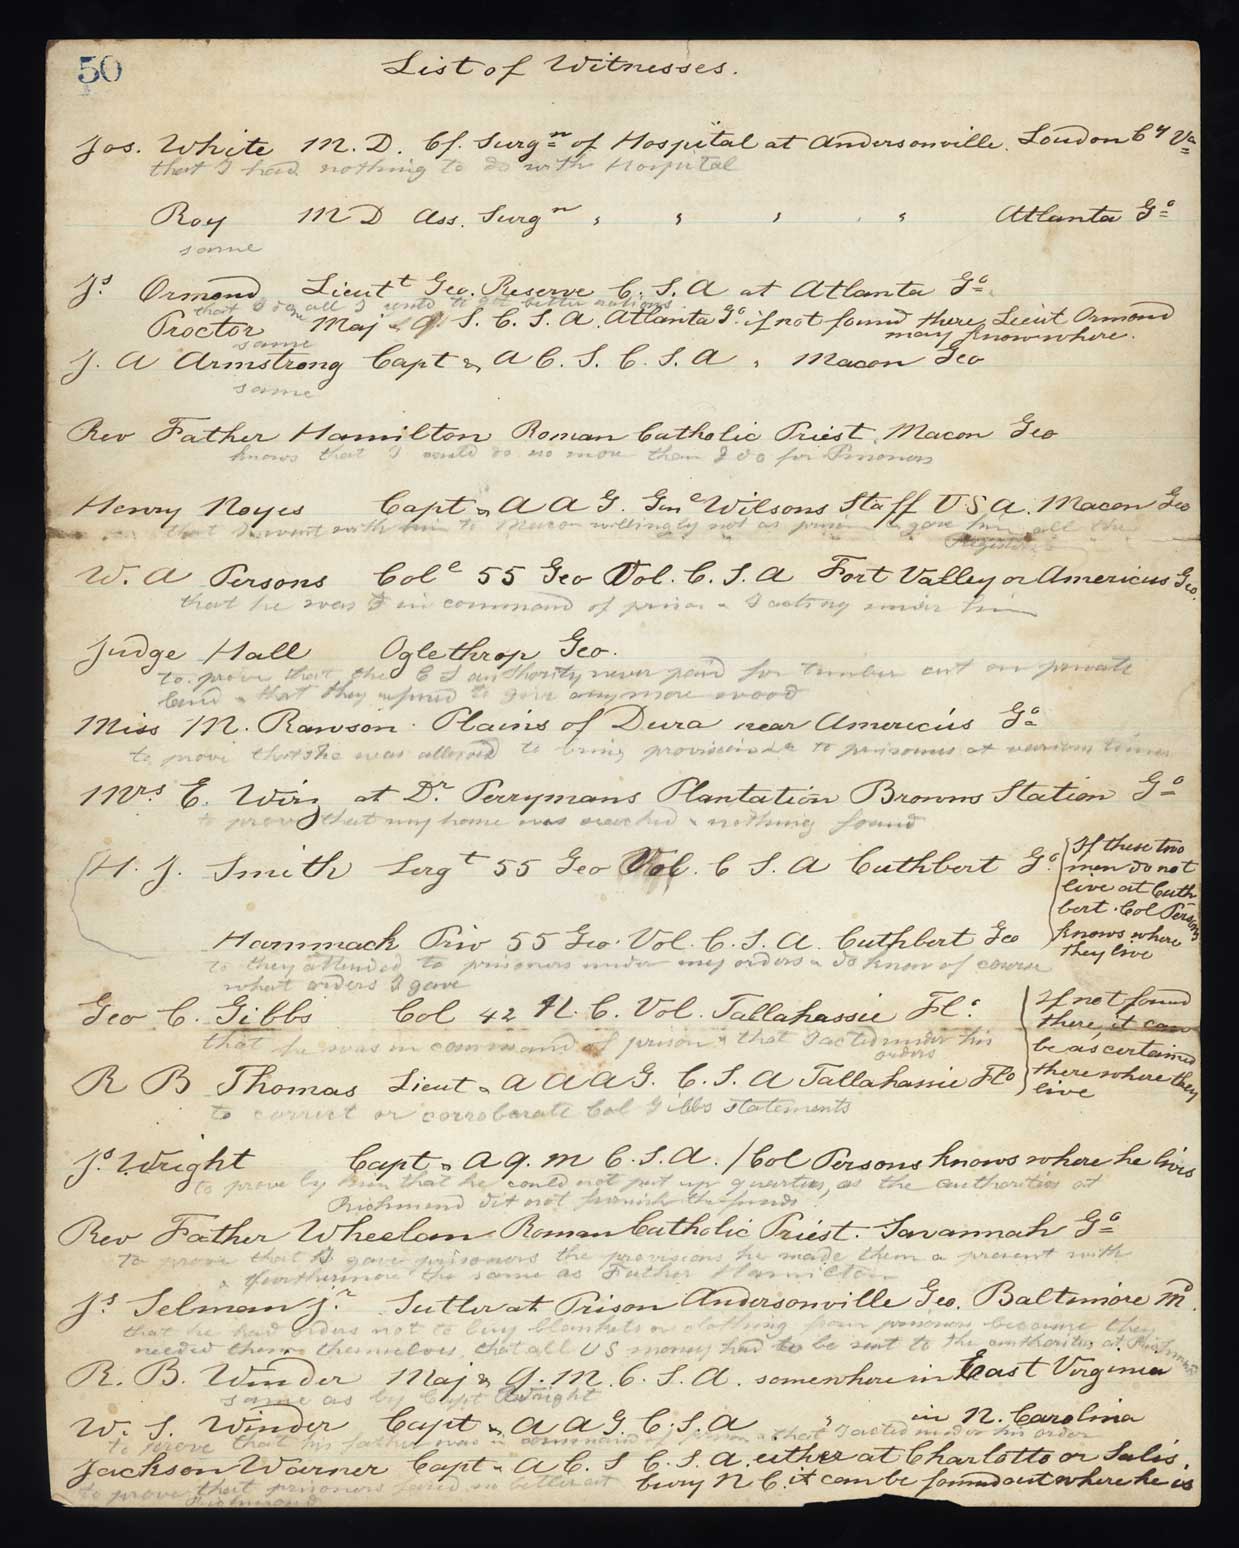 50
List of Witnesses.
Jos. White M. D. Cf. Surgn of Hospital at Andersonville. Loudon Cy Va
that I had nothing to do with Hospital
Roy M D Ass. Surgn " " " " Atlanta Go
same
Js. Ormond Lieutt Geo. Reserve C. S. A at Atlanta Go.
that I done all I could to get better rations
Proctor Maj & Q. S. C. S. A. Atlanta Go. if not found there Lieut Ormond
may know where.
same
J. A Armstrong Capt & A C. S. C. S. A " Macon Geo
same
Rev Father Hamilton Roman Catholic Priest. Macon Geo
knows that I could do no more than I do for Prisoners
Henry Noyes Capt & A A G. Genl Wilsons Staff U S A. Macon Geo
that I went with him to Macon willingly not as & gave him all the
W. A Persons Cole 55 Geo Vol. C. S. A Fort Valley or Americus Geo.
that he was in command of prison & I acting under him
Judge Hall Oglethrop Geo.
to prove that the C S authority never paid for timber cut on private
land & that they refused to give any more wood
Miss M. Rawson. Plains of Dura near Americus Go
to prove that she was allowed to bring provisions to prisoners at various times
Mrs E. Wirz at Dr. Perrymans Plantation Browns Station Go
to prove that my home was searched & nothing found
H. J. Smith Sergt 55 Geo Vol. C S. A Cuthbert Go
If these two
men do not
live at Cuth
bert. Col Persons
knows where
they live
Hammack Priv 55 Geo. Vol. C. S. A. Cuthbert Geo
to they attended to prisoners under my orders & do know of course
what orders I gave
Geo C. Gibbs Col 42 N. C. Vol. Tallahassie Flo.
If not found
there, it can
be ascertained
there where they
live
that he was in command of prison & that I acted under his
orders
R B Thomas Lieut & A A A G. C. S. A Tallahassie Flo
to correct or corroborate Col Gibbs statements
Js. Wright Capt & A Q. M C. S. A. / Col Persons knows where he lives
to prove by him that he could not put up quarters, as the authorities at
Richmond did not furnish the funds
Rev Father Wheelan Roman Catholic Priest. Savannah Go
to prove that I gave prisoners the provisions he made them a present with
& furthermore the same as Father Hamilton
Js Selman jr. Sutler at Prison Andersonville Geo. Baltimore Md.
that he had orders not to buy blankets or clothing from prisoners because they
needed them themselves, that all U S money had to be sent to the authorities at Richmond
R. B. Winder Maj & Q. M. C. S. A. somewhere in East Virginia
same as by Capt Wright
W. S. Winder Capt & A A G. C. S. A " in N. Carolina
to prove that his father was in command of prison & that I acted under his order
Jackson Warner Capt & A C. S C. S. A. either at Charlotto or Salis
bury N C. it can be found out where he is
to prove that prisoners
Richmond